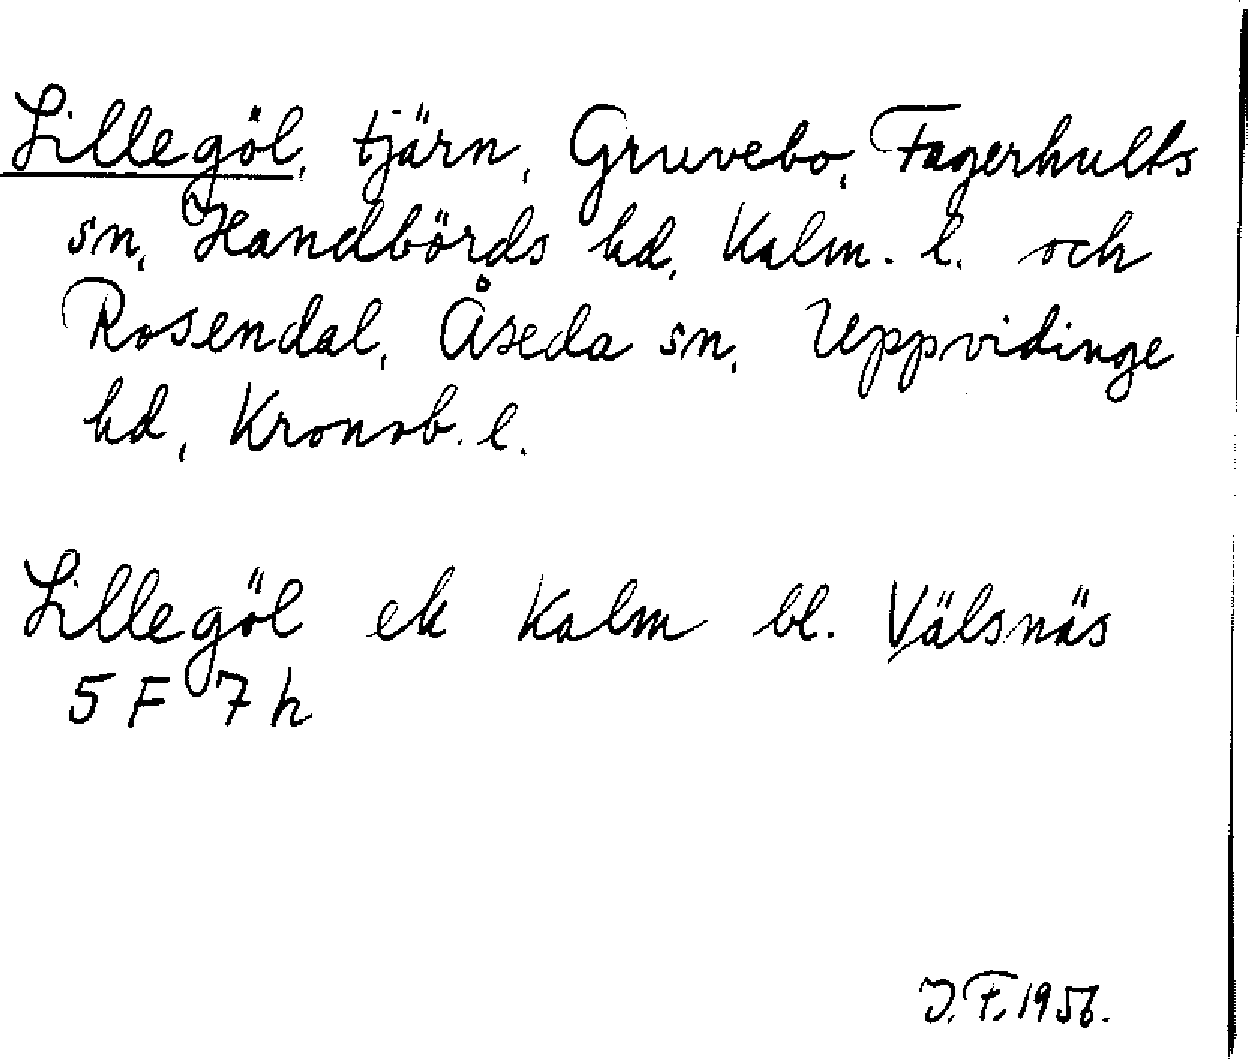 Lillegöl, tjärn, Gruvebo, Fagerhults
sn, Handbörds hd, Kalm. l. och
Rosendal, Åseda sn, Uppvidinge
hd, Kronob. l.
Lillegöl ek Kalm bl. Välsnäs
5 F 7 h
J. F. 1956.